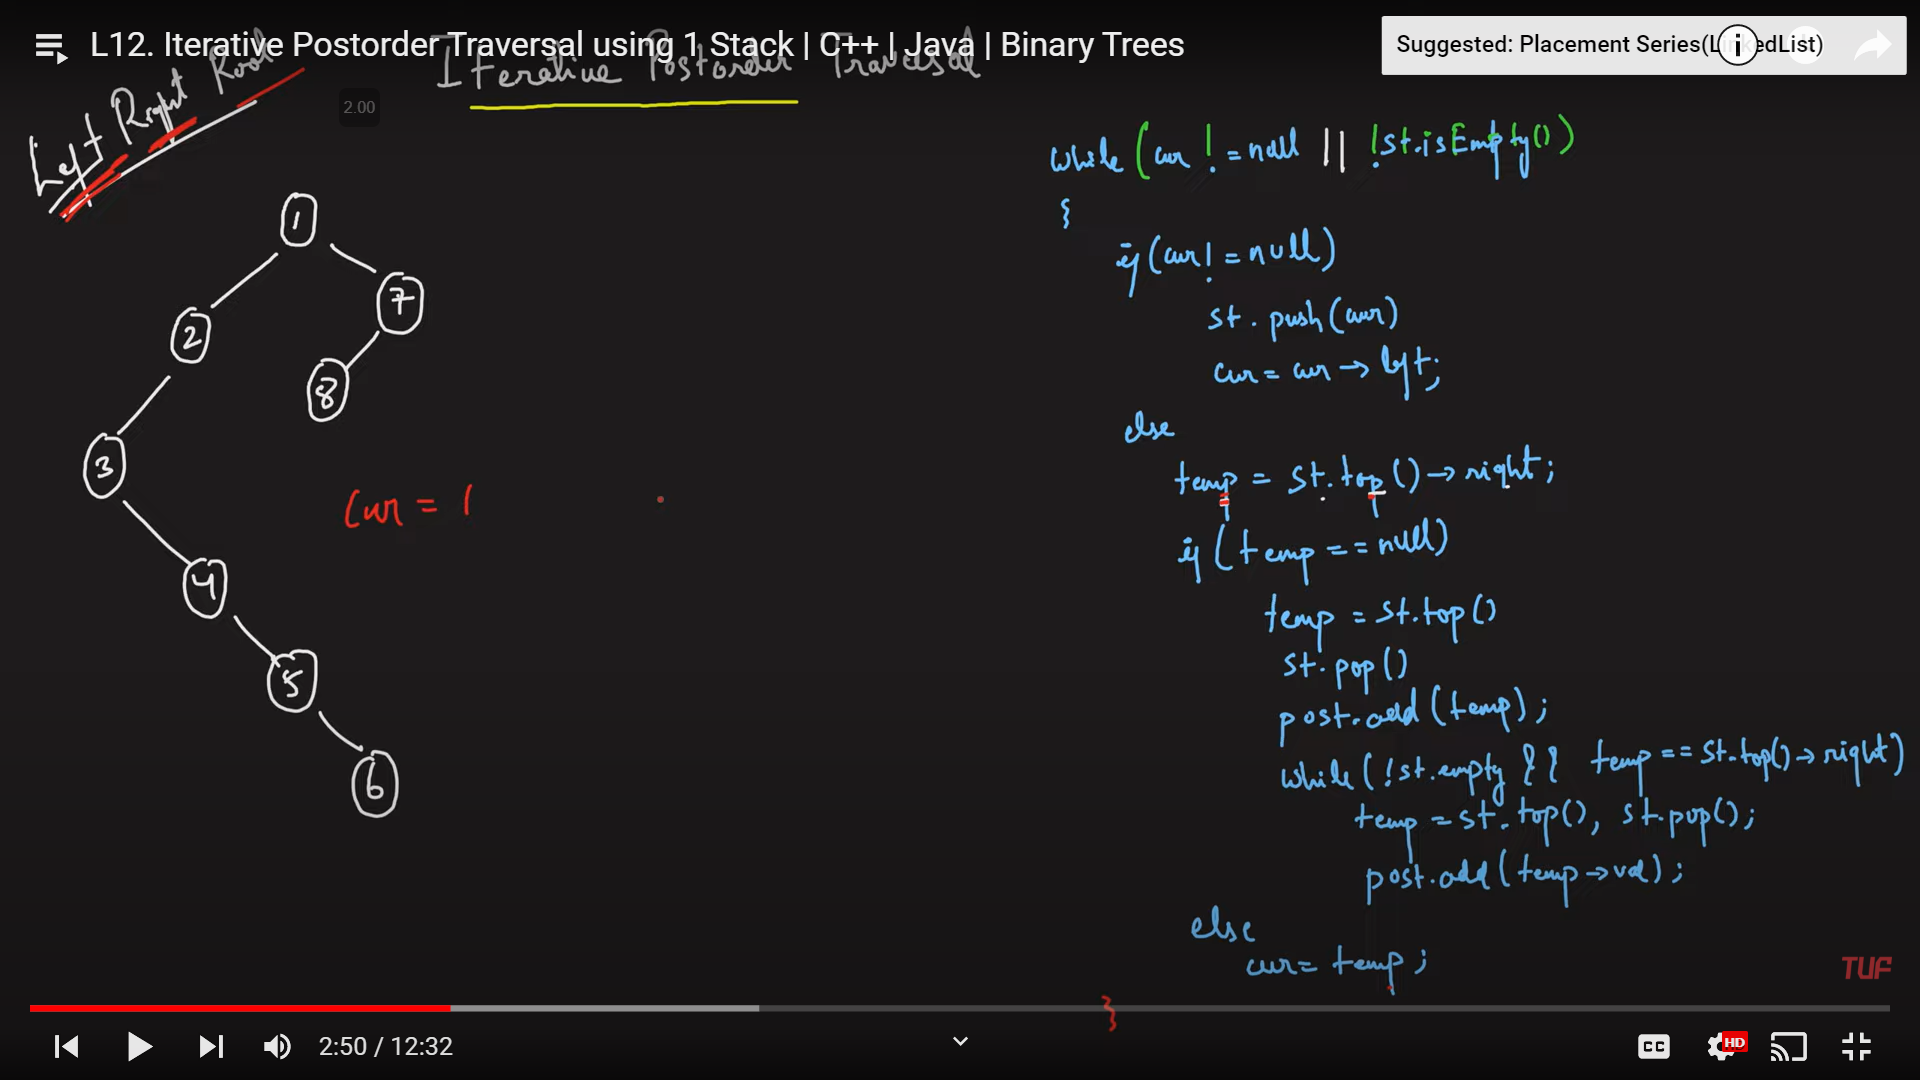 L12. Iterative Postorder Traversal using 1 Stack | C++ | Java | Binary Trees
Suggested: Placement Series(LinkedList)
Iterative Postorder Traversal
Left Right Root
2.00
while (cur != null || !st.isEmpty())
{
if (cur != null)
st.push(cur)
cur = cur → left;
else
temp = st.top() → right;
if (temp == null)
temp = st.top()
st.pop()
post.add(temp);
while (!st.empty && temp == st.top() → right)
temp = st.top(), st.pop();
post.add(temp → val);
else
cur = temp;
}
1
7
2
8
3
cur = 1
4
5
6
TUF
2:50 / 12:32
CC
HD